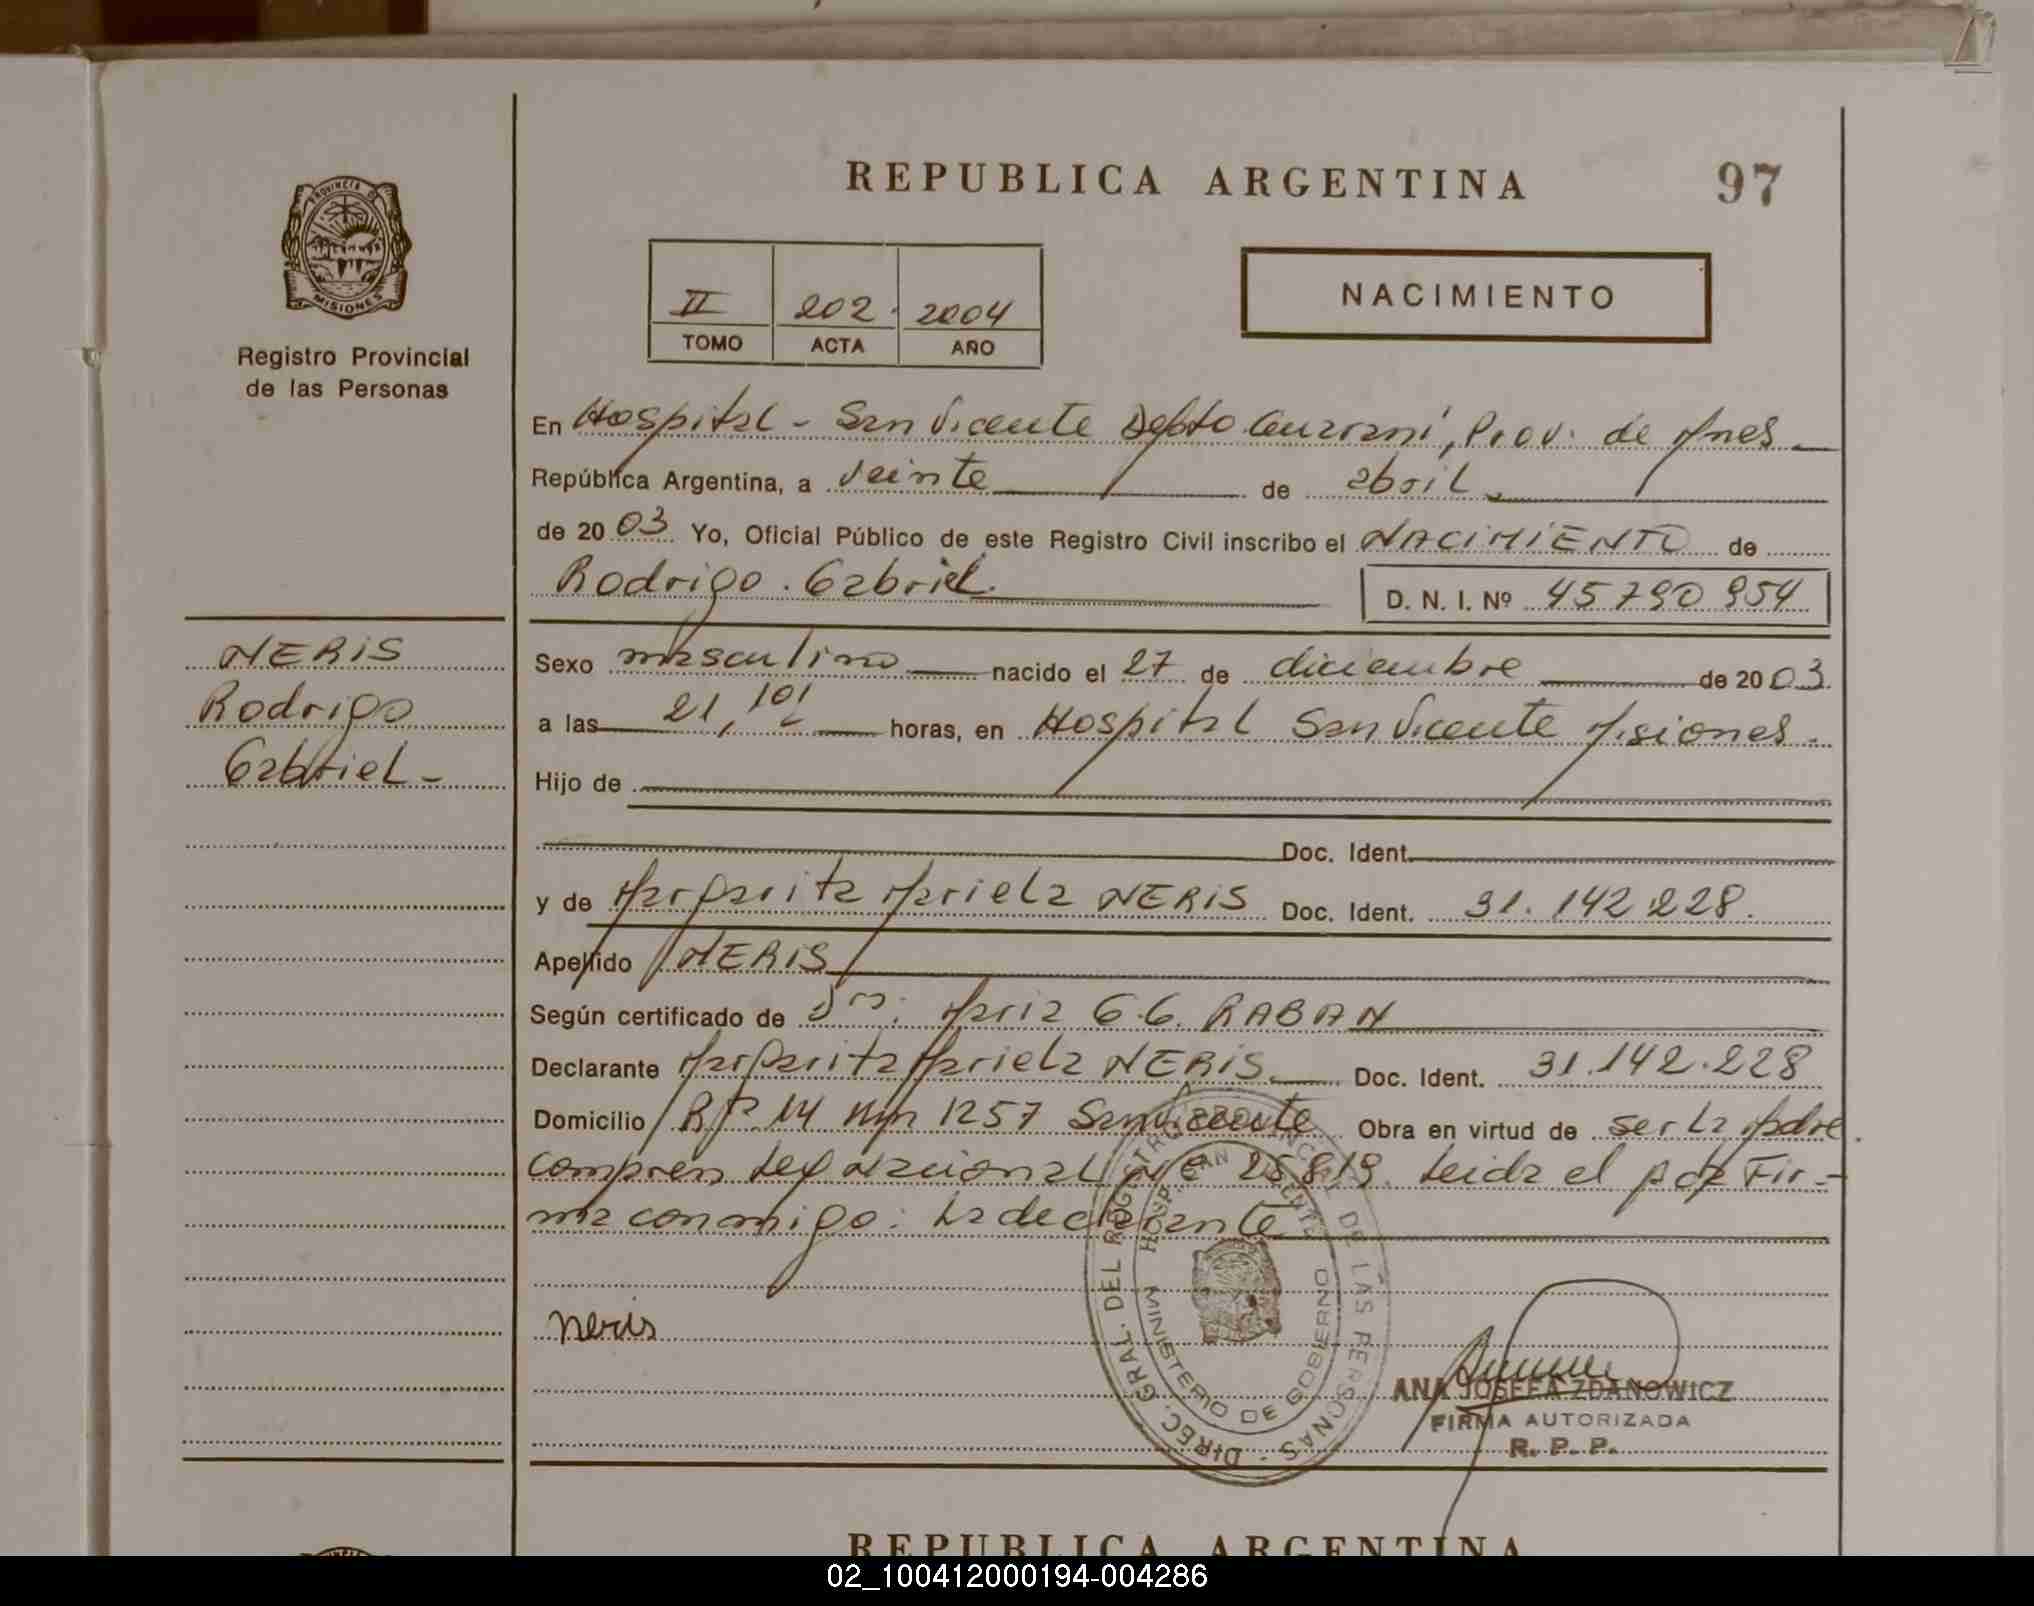 REPUBLICA ARGENTINA
97
PROVINCIA DE
MISIONES
Registro Provincial
de las Personas
II 202 2004
TOMO ACTA AÑO
NACIMIENTO
En Hospital - San Vicente Depto Guaraní, Prov. de Mnes
República Argentina, a veinte de abril
de 2003 Yo, Oficial Público de este Registro Civil inscribo el NACIMIENTO de
Rodrigo Gabriel D. N. I. Nº 45790954
NERIS
Rodrigo
Gabriel
Sexo masculino nacido el 27 de diciembre de 2003
a las 21,10 horas, en Hospital San Vicente Misiones
Hijo de
Doc. Ident.
y de Margarita Mariela NERIS Doc. Ident. 31.142.228.
Apellido NERIS
Según certificado de Maria G.G. RABAN
Declarante Margarita Mariela NERIS Doc. Ident. 31.142.228
Domicilio 14 1257 San Vicente Obra en virtud de ser la Madre
compren Ley Nacional Nº 25819. Leida el acta Fir-
ma conmigo: La declarante
neris
DIREC. GRAL. DEL REGISTRO PROVINCIAL DE LAS PERSONAS
HOSP. SAN VICENTE
MINISTERIO DE GOBIERNO
ANA JOSEFA ZDANOWICZ
FIRMA AUTORIZADA
R. P. P.
REPUBLICA ARGENTINA
02_100412000194-004286